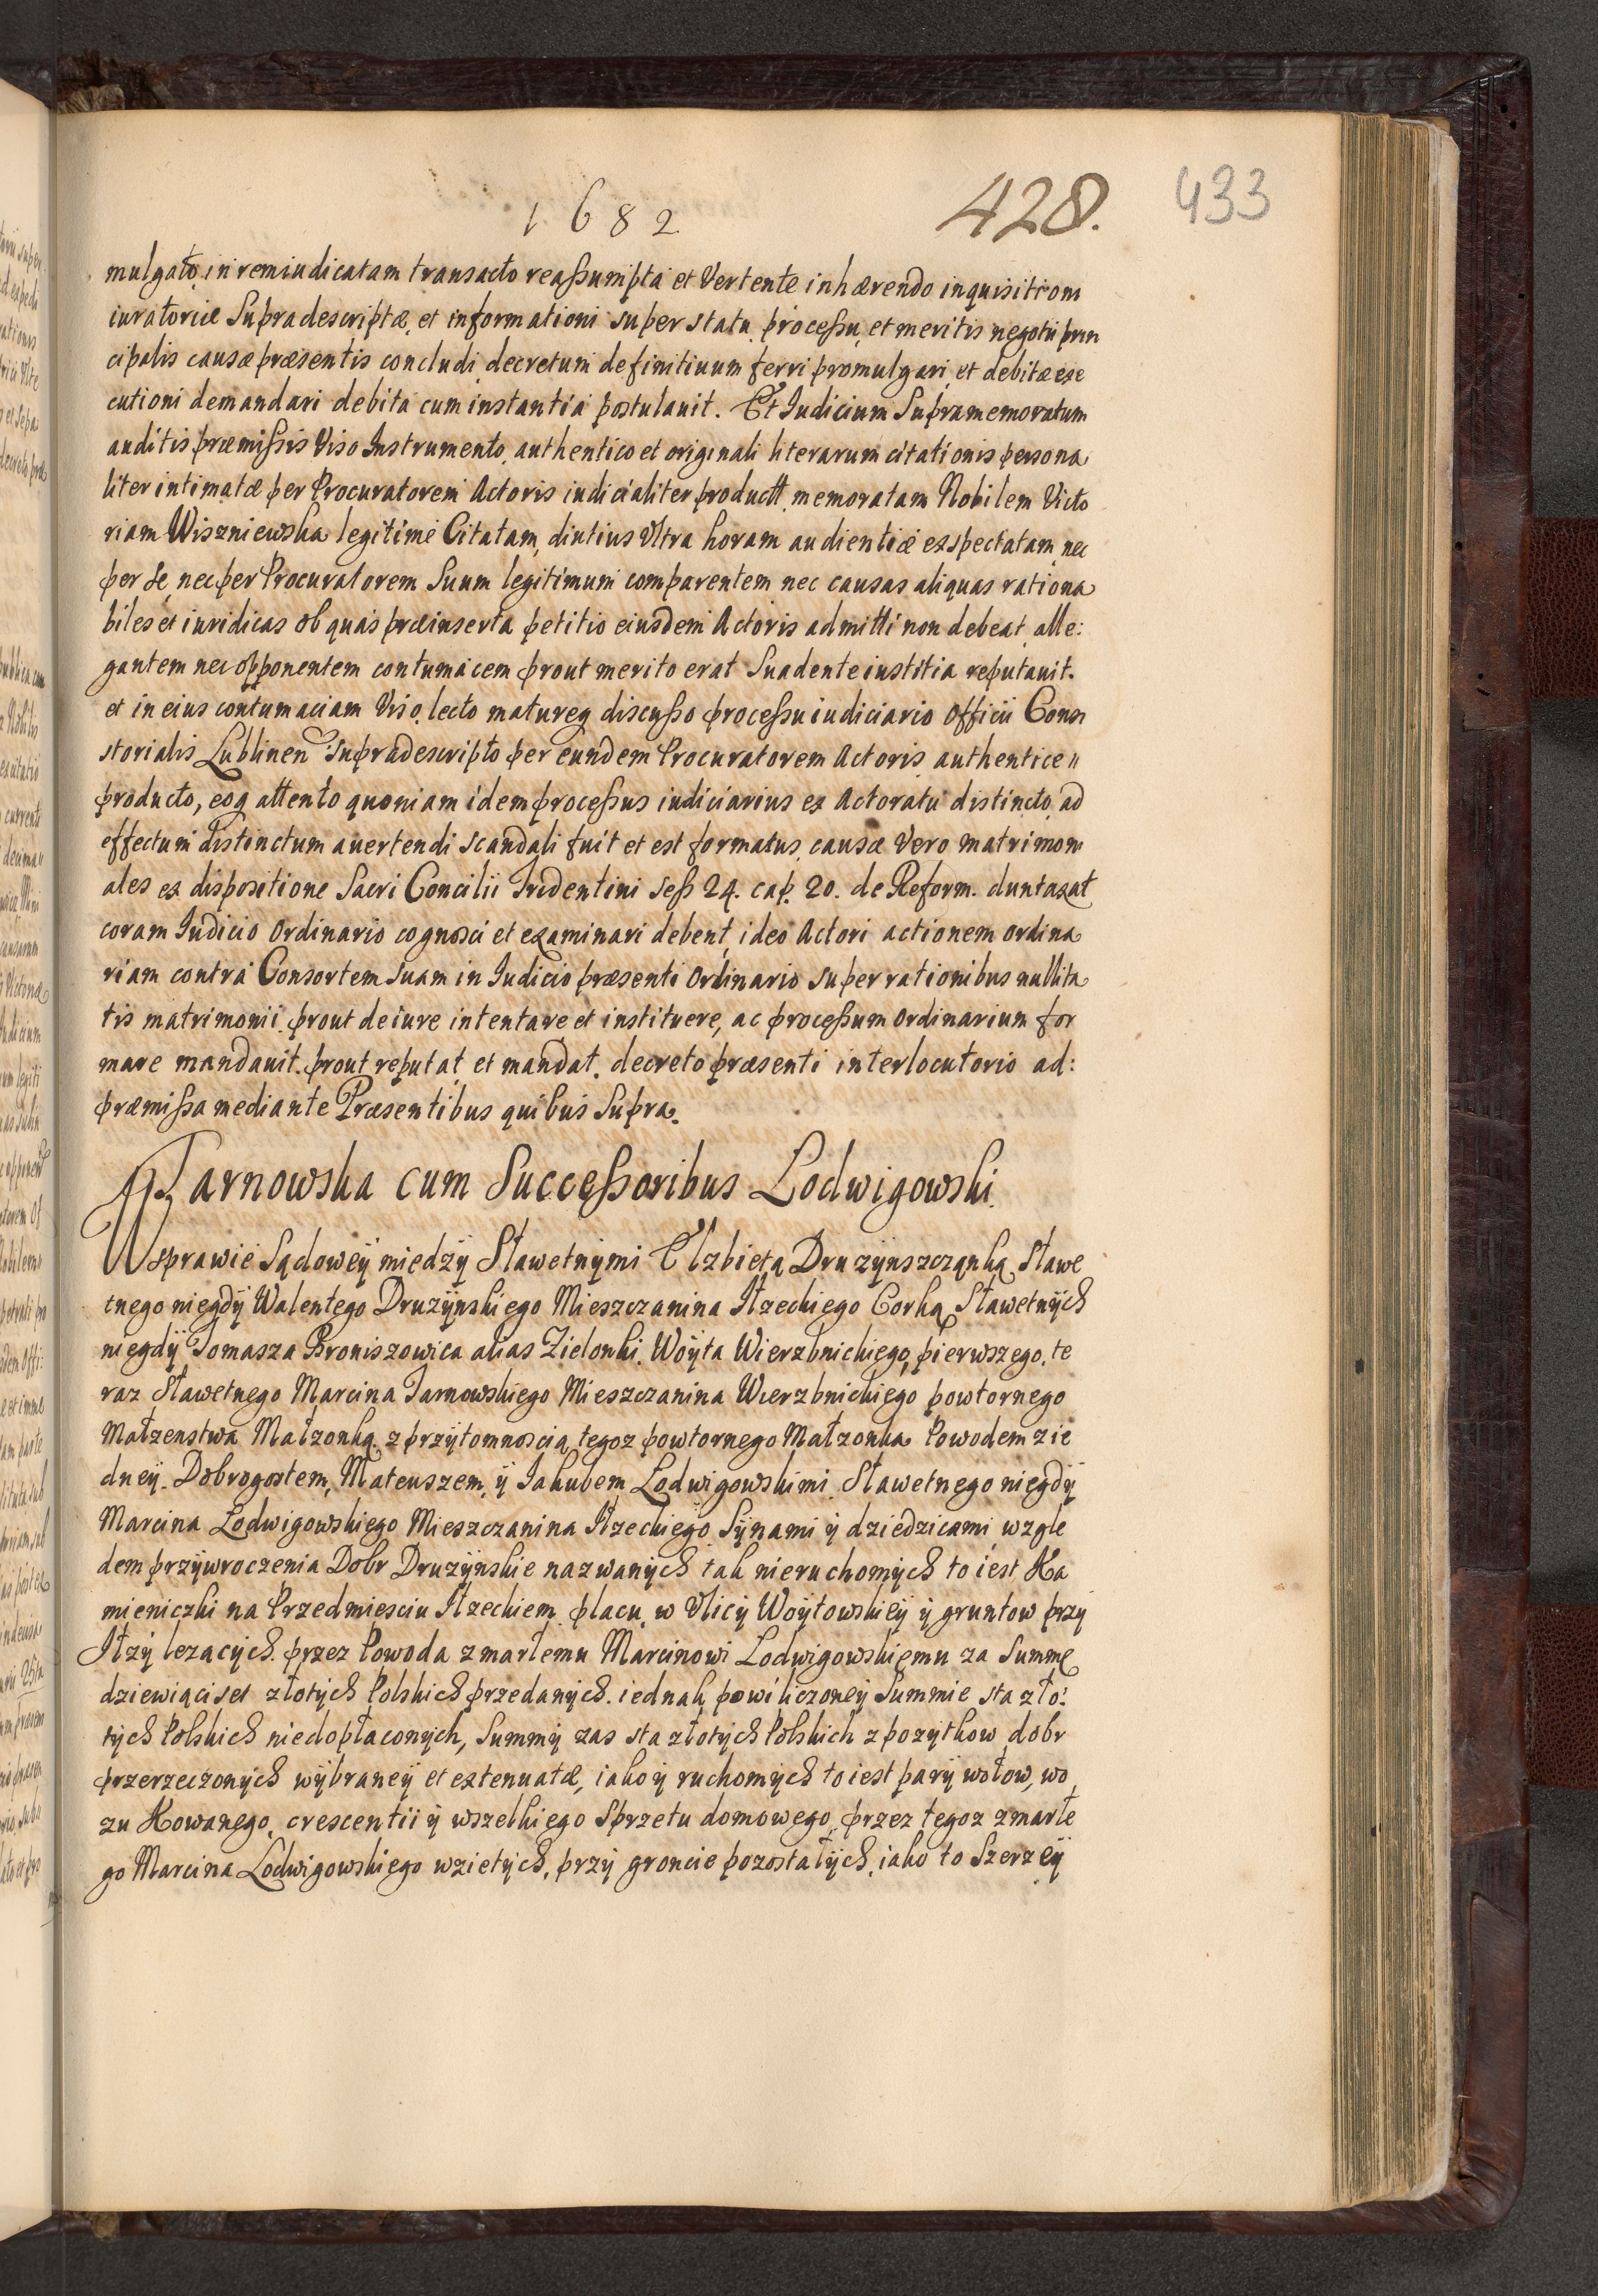 1682
428.
433
mulgato, in rem iudicatam transacto reaßumpta et Vertente inhærendo inquisitioni
iuratoriæ Supradescriptæ, et informationi super statu processu, et meritis negotii prin
cipalis causæ præsentis concludi decretum definitiuum ferri promulgari et debitæ exe
cutioni demandari debita cum instantia postulauit. Et Iudicium Supramemoratum
auditis præmißis Viso Instrumento authentico et originali literarum citationis persona
liter intimatæ per Procuratorem Actoris iudicialiter productt. memoratam Nobilem Victo
riam Wiszniewska legitime Citatam, diutius Vltra horam audientiæ exspectatam nec
per se, nec per Procuratorem Suum legitimum comparentem nec causas aliquas rationa
biles et iuridicas ob quas præinserta petitio eiusdem Actoris admitti non debeat alle:
gantem nec opponentem contumacem prout merito erat Suadente iustitia reputauit.
et in eius contumaciam Viso, lecto matureq discußo proceßu iudiciario Officii Consi
storialis Lublinen supradescripto per eundem Procuratorem Actoris authentice
producto, eoq attento quoniam idem proceßus iudiciarius ex Actoratu distincto, ad
effectum distinctum auertendi scandali fuit et est formatus, causæ Vero matrimoni
ales ex dispositione Sacri Concilii Tridentini seß 24. cap. 20. de Reform. duntaxat
coram Iudicio Ordinario cognosci et examinari debent, ideo Actori actionem ordina
riam contra Consortem suam in Iudicio præsenti Ordinario super rationibus nullita
tis matrimonii prout de iure intentare et instituere, ac proceßum ordinarium for
mare mandauit. prout reputat et mandat. decreto præsenti interlocutorio ad:
præmißa mediante Præsentibus quibus Supra.
Tarnowska cum Succeßoribus Lodwigowski.
W sprawie Sądoweÿ miedzÿ Sławetnÿmi Elzbietą Druzÿnszcząnką Sławe
tnego niegdÿ Walentego Druzÿnskiego Mieszczanina Iłzeckiego Corką Sławetnÿch
niegdÿ Tomasza Broniszowica alias Zielonki. Woÿta Wierzbnickiego, pierwszego, te
raz Sławetnego Marcina Tarnowskiego Mieszczanina Wierzbnickiego powtornego
Małzenstwa Małzonką z przÿtomnoscią tegoz powtornego Małzonka Powodem z ie
dneÿ. Dobrogostem, Mateuszem, ÿ Iakubem Lodwigowskimi Sławetnego niegdÿ
Marcina Lodwigowskiego Mieszczanina Iłzeckiego Sÿnami ÿ dziedzicami wzglę
dem przÿwroczenia Dobr Druzÿnskie nazwanÿch tak nieruchomÿch to iest Ka
mieniczki na Przedmiesciu Iłzeckiem placu w Vlicÿ Woÿtowskieÿ ÿ gruntow przÿ
Iłzÿ lezacÿch. przez Powoda zmarłemu Marcinowi Lodwigowskiemu za Summę
dziewiąciset złotÿch Polskich przedanÿch. iednak powiliczoneÿ Summie sta zło:
tÿch Polskich niedopłaconÿch, Summÿ zas sta złotÿch Polskich z pozÿtkow dobr
przerzeczonÿch wÿbraneÿ et extenuatæ, iako ÿ ruchomÿch to iest parÿ wołow, wo
zu Kowanego, crescentii ÿ wszelkiego Sprzetu domowego, przez tegoz zmarłe
go Marcina Lodwigowskiego wzietÿch, przÿ groncie pozostałÿch, iako to Szerzeÿ